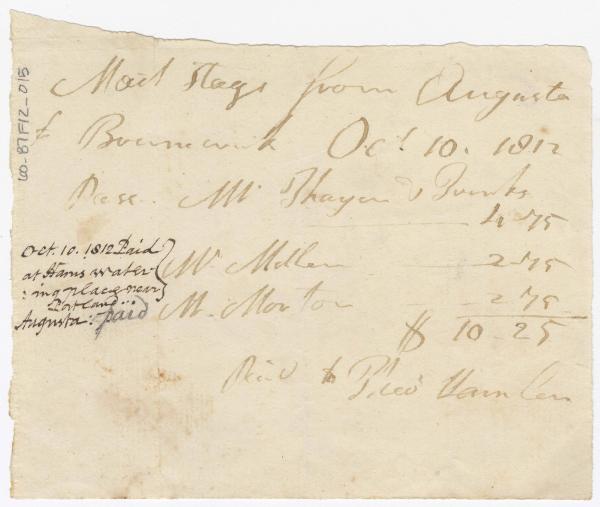 60-87F12-015
Mail Stage from Augusta
t Brunswick Oct 10. 1812
Pass. Mr Thayer & Trunks
4-75
Mr. Mellen 2-75
M. Morton 2-75
$ 10-25
Oct. 10. 1812 Paid
at Hams water
:ing place near
Portland...
Augusta: paid
Paid to